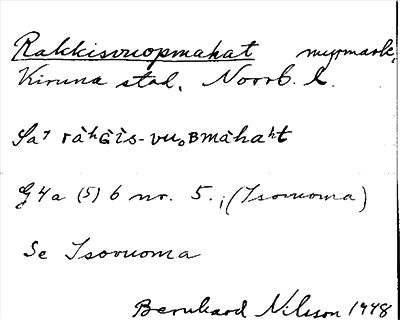 Rakkisvuopmahat myrmark,
Kiruna stad, Norrb. l.
Sa⁷ ràʰGìs-vuₒBmàhaʰt
G4a (5) 6 nr. 5.; (Isovuoma)
Se Isovuoma
Bernhard Nilsson 1948